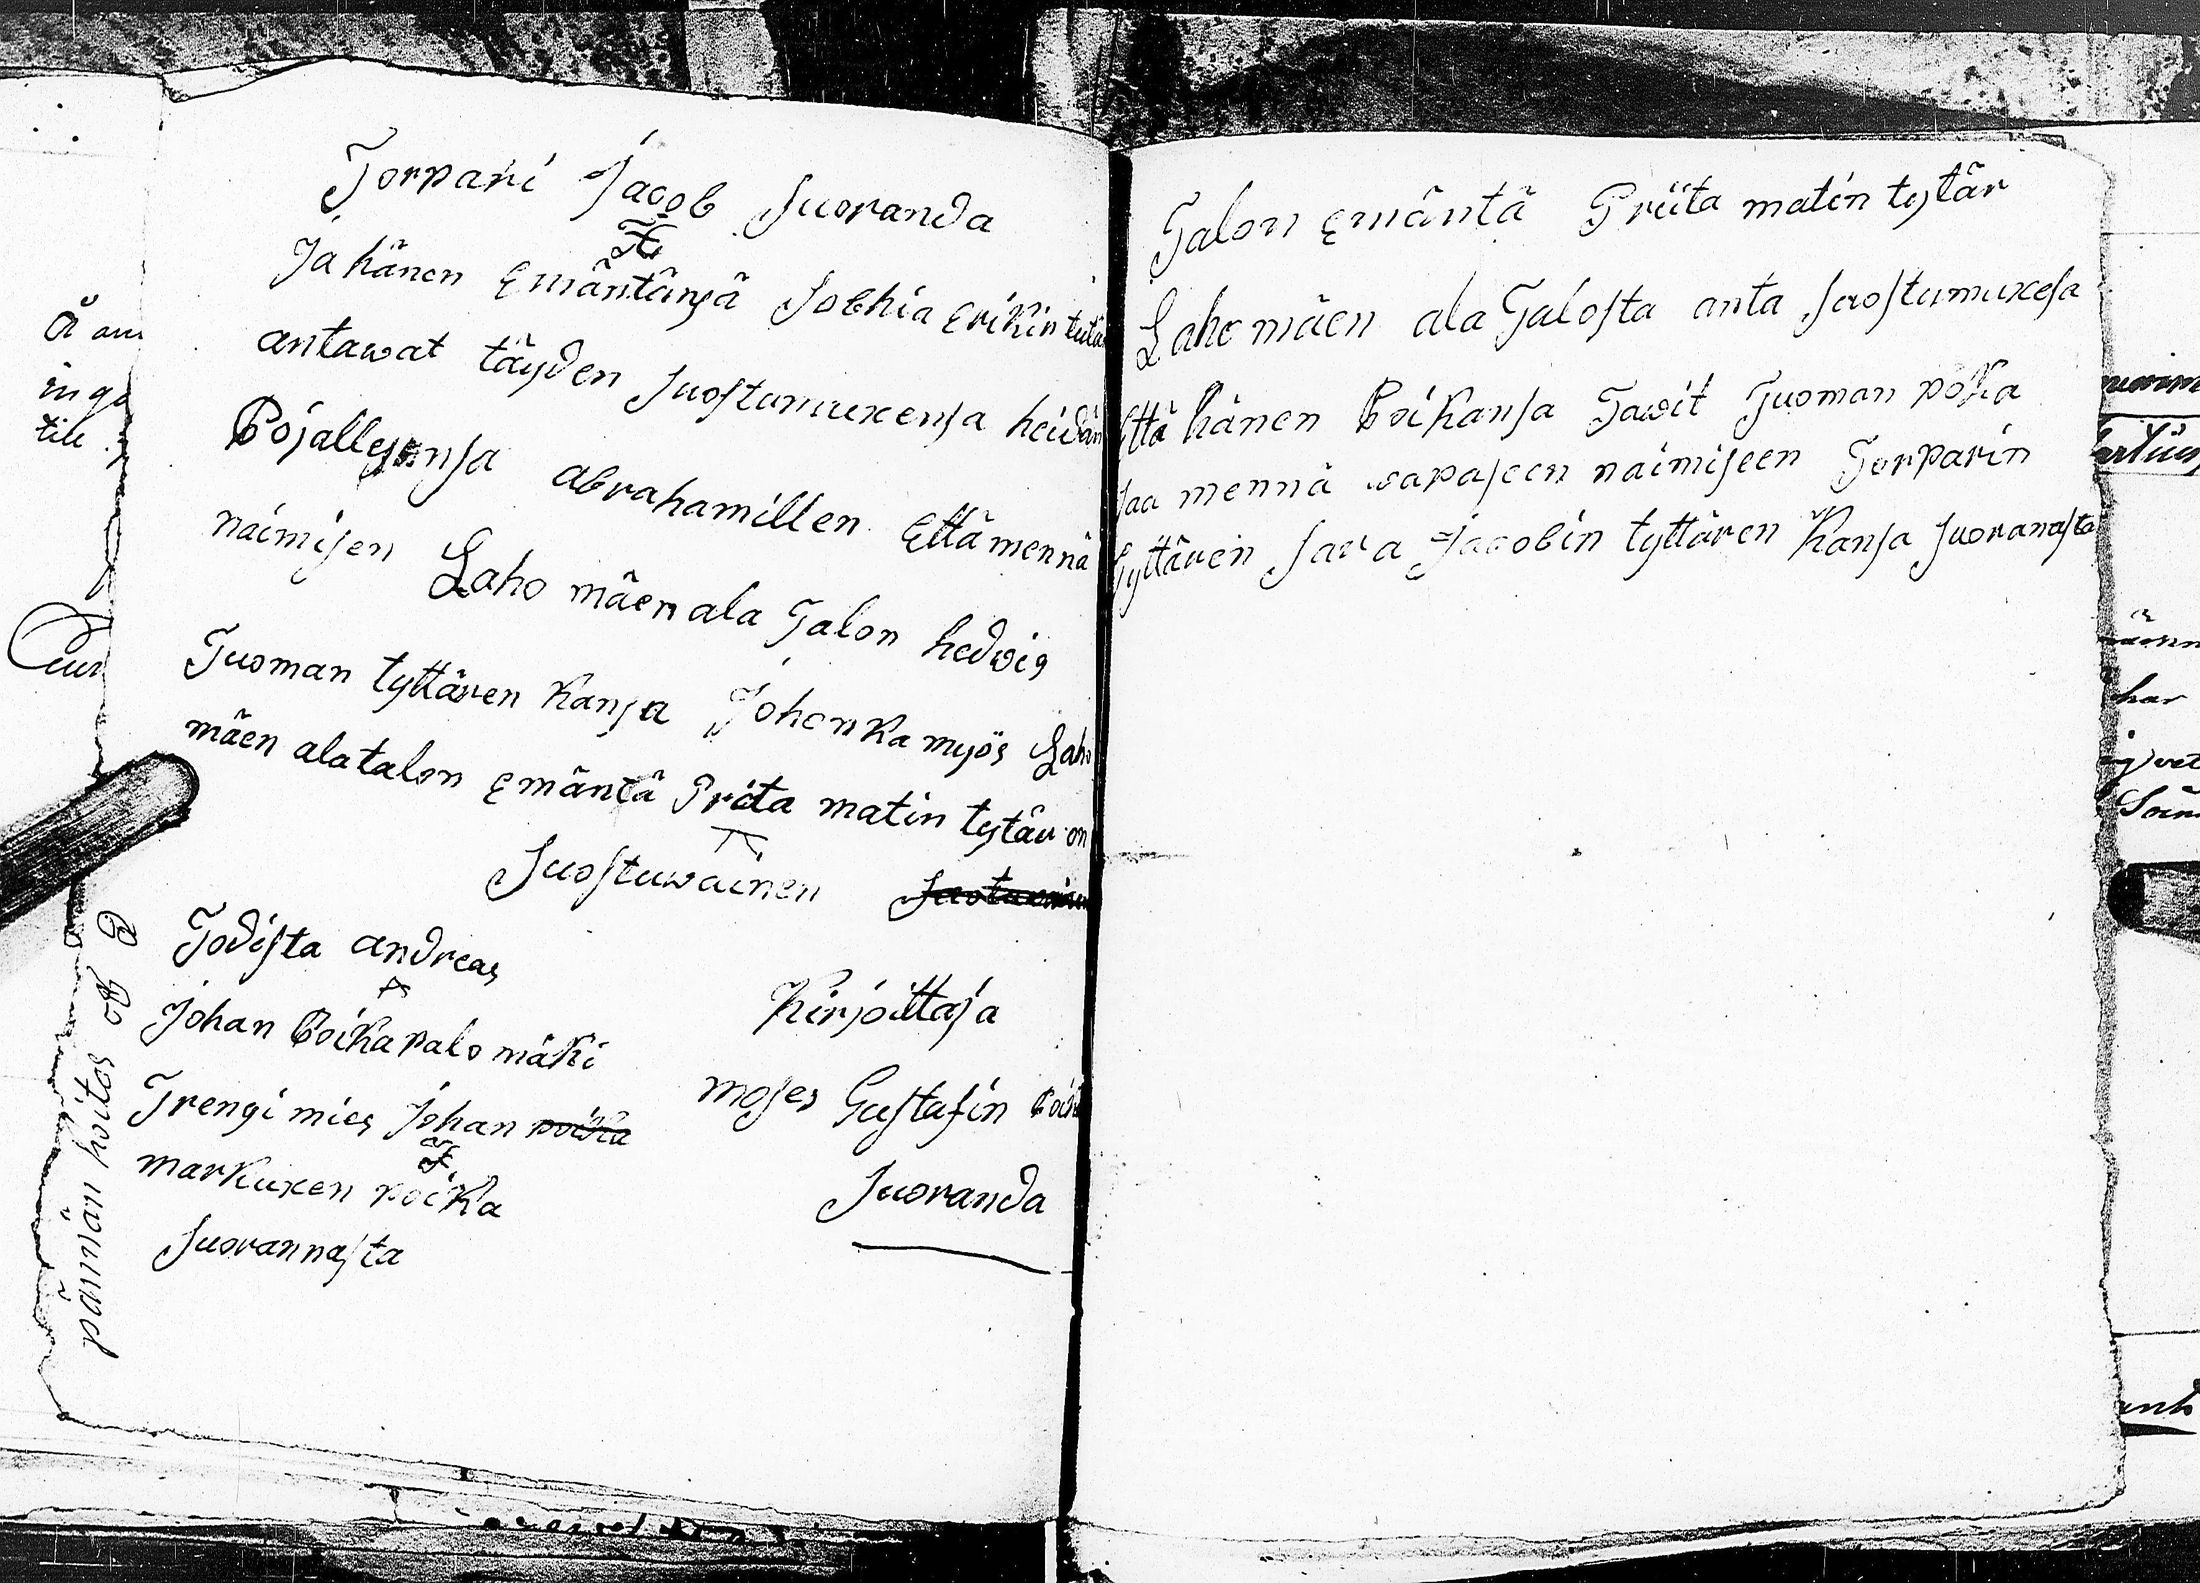 Torpari Jacob Suoranda
Ja hänen Emäntänsä Sobhia Erikin tutär
antawat täyden Suostumuxensa heidän
Pojallensa abrahamillen Että mennä
naimisen Laho mäen ala Talon hedwig
Tuoman tyttären Kansa Johonka myös Laho
mäen alatalon Emäntä Priita matin tytär on
Suostuwainen
Todista andreas
Johan Poika palo mäki
Trengi mies Johan poika
markuxen poika
Suorannasta
Kirjoittaja
moses Gustafin Poika
Suoranda
pännän hoitos
Talon Emäntä Priita matin tytär
Laho mäen ala Talosta anta suostumuxesa
Että hänen Poikansa Tawit Tuoman poika
saa mennä wapaseen naimiseen Torparin
Tyttären Sara Jacobin tyttären Kansa Suoranasta
å
in
till
har